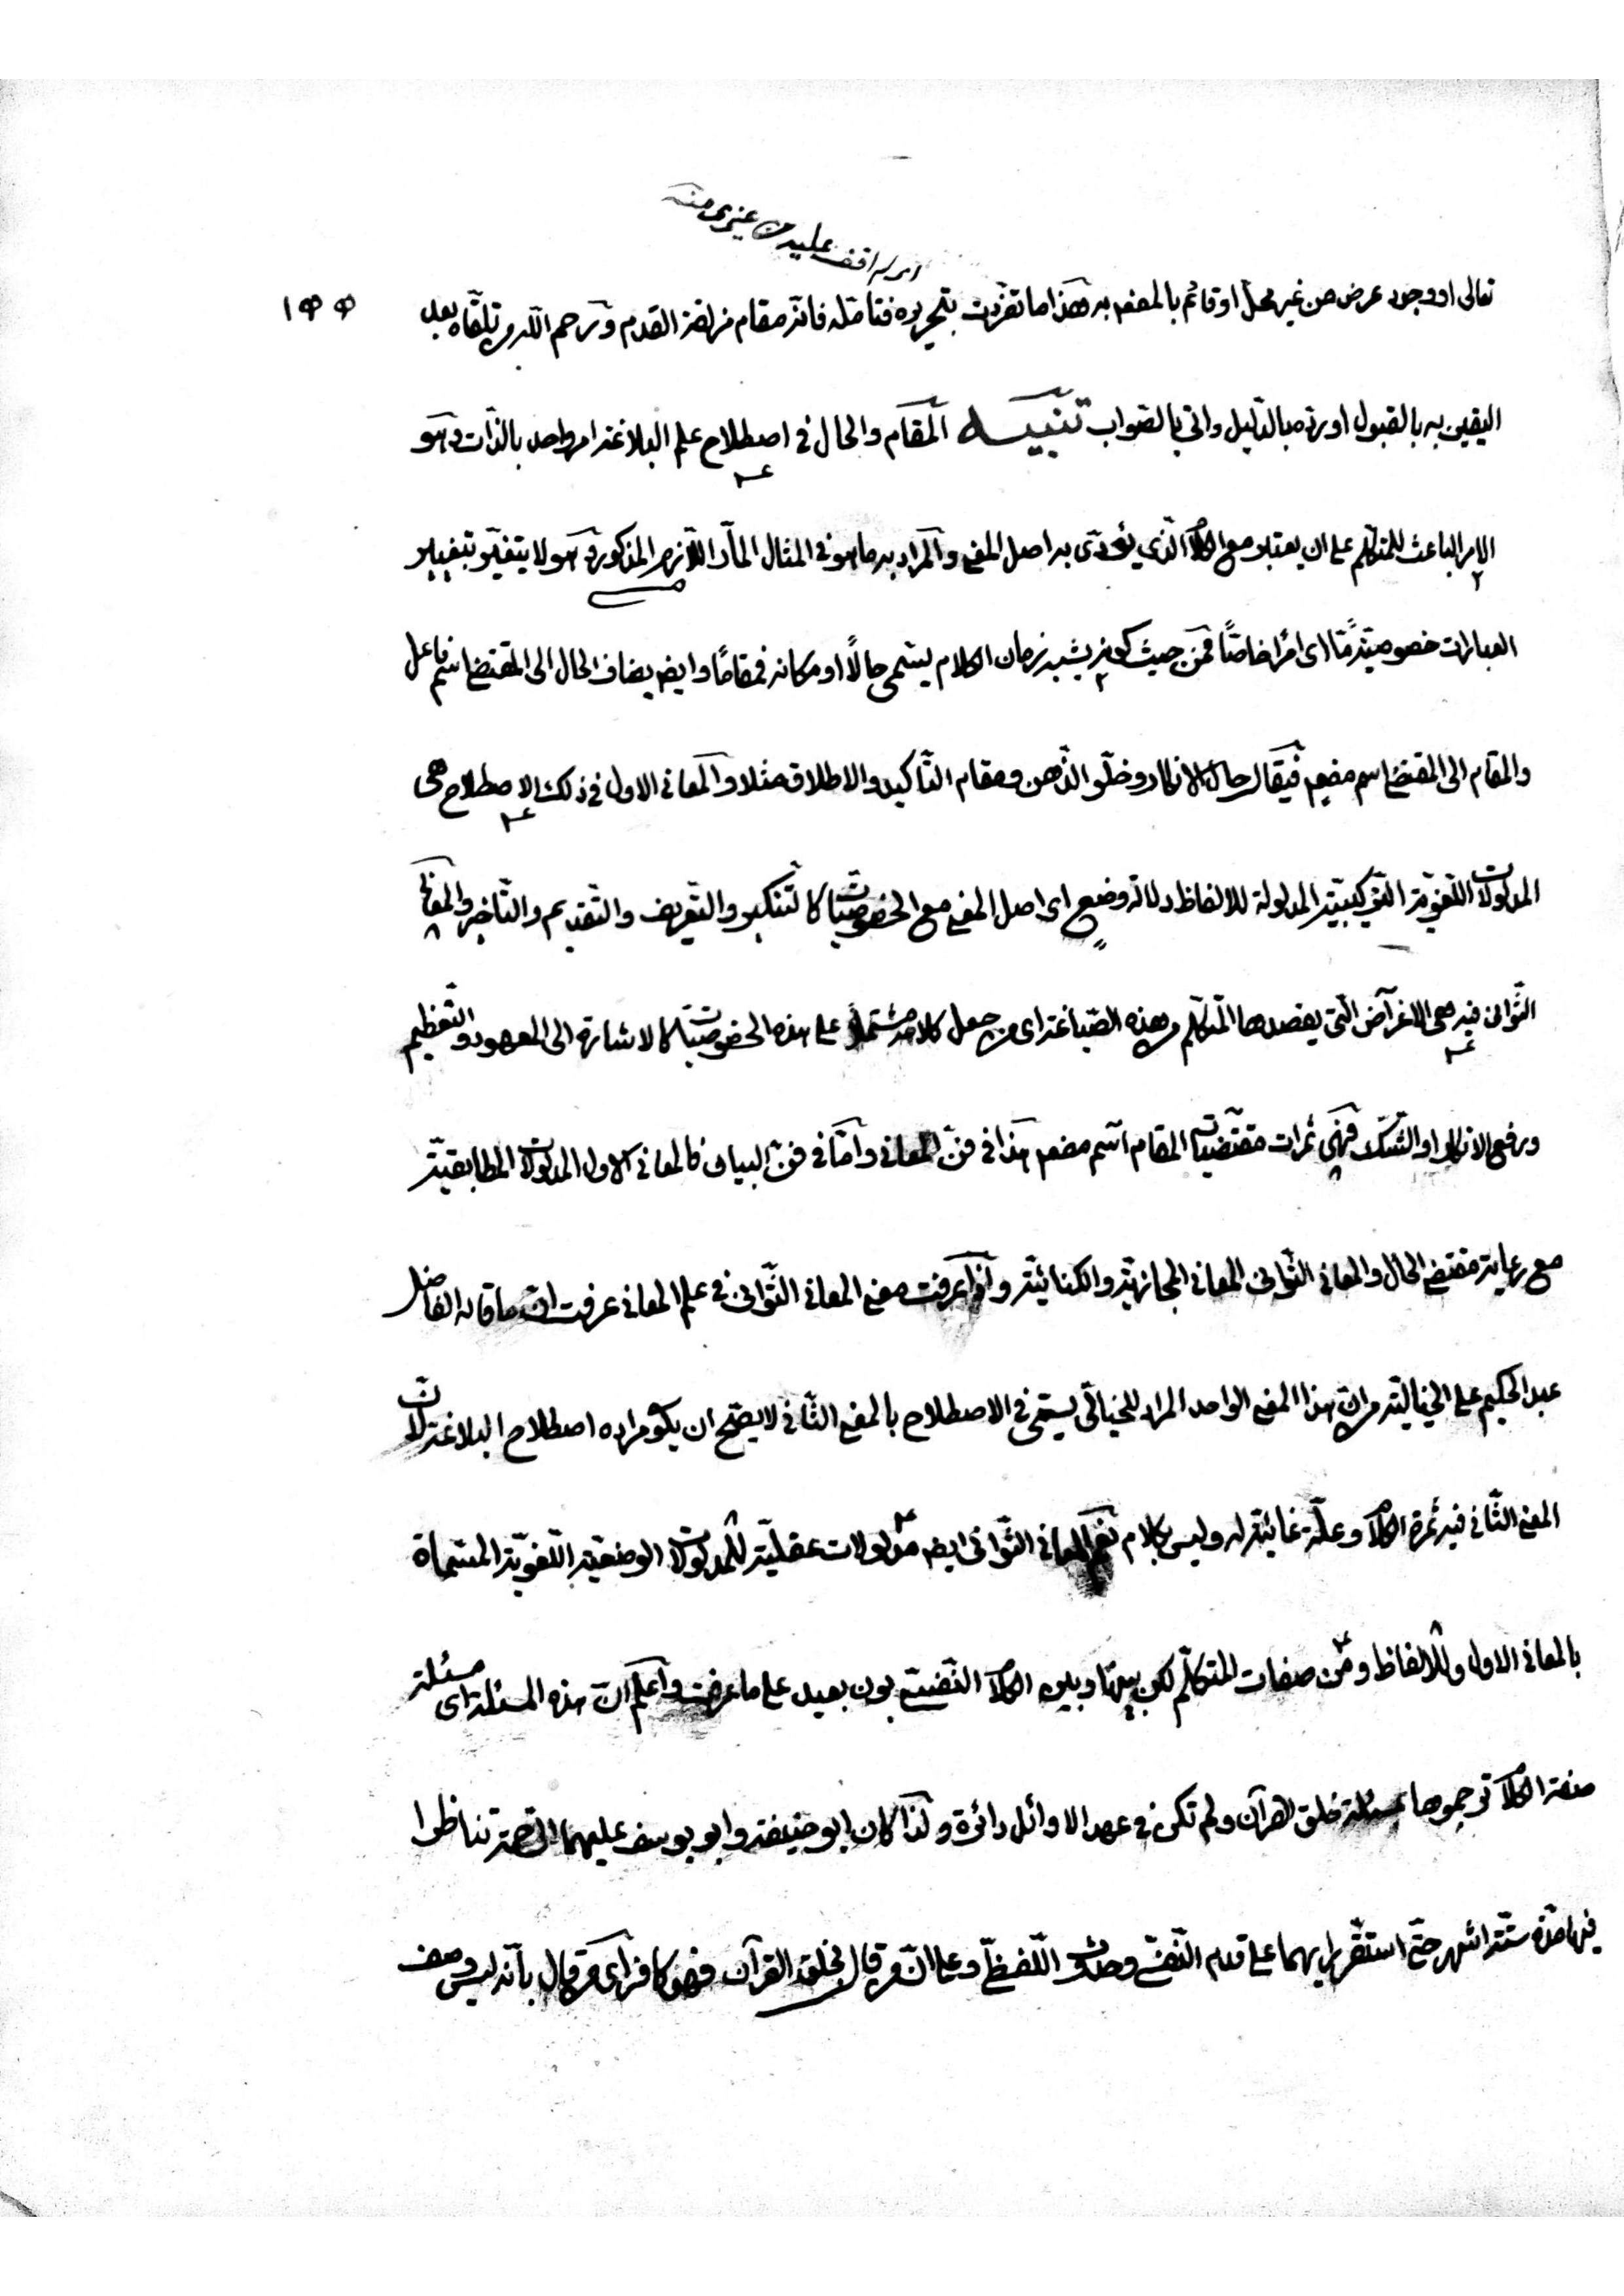 اى لم اقف عليه من غيرى منه
١٥٥
تعالى او وجود عرض من غير محل او قائم بالمعنى به هكذا ما تفردت بتحريره فتأمله فانه مقام مزلقة القدم ورحم الله من تلقاه بعد
اليقين به بالقبول او رده بالدليل واتى بالصواب تنبيه المقام والحال فى اصطلاح علم البلاغة امر واحد بالذات وهو
الامر الباعث للمتكلم على ان يعتبر مع الكلام الذى يؤدى به اصل المعنى والمراد به ما هو فى المثال المار اللازم المذكور وهو لا يتغير بتغيير
العبارات خصوصية ما اى امرا خاصا فمن حيث كونه يشبه زمان الكلام يسمى حالا او مكانه فمقاما وايضا يضاف الحال الى المقتضى اسم فاعل
والمقام الى المقتضى اسم مفعول فيقال حال الانكار وخلو الذهن ومقام التأكيد والاطلاق مثلا والمعانى الاول فى ذلك الاصطلاح هى
المدلولات اللغوية التركيبية المدلولة للالفاظ دلالة وضع اى اصل المعنى مع الخصوصيات كالتنكير والتعريف والتقديم والتأخير والمعانى
الثوانى فيه هى الاغراض التى يقصدها المتكلم من هذه الصياغة اى من جعل كلامه مشتملا على هذه الخصوصيات كالاشارة الى المعهود والتعظيم
ورفع الانكار او الشك فهى ثمرات مقتضيات المقام اسم مفعول هذا فى فن المعانى واما فى فن البيان فالمعانى الاول المدلولات المطابقية
مع رعاية مقتضى الحال والمعانى الثوانى المعانى المجازية والكنائية واذا عرفت معنى المعانى الثوانى فى علم المعانى عرفت ان ما قاله الفاضل
عبد الحكيم على الخيالية من ان هذا المعنى الواحد المراد للخيالى يسمى فى الاصطلاح بالمعنى الثانى لا يصح ان يكون مراده اصطلاح البلاغة لان
المعنى الثانى فيه ثمرة الكلام وعلة غائية له وليس بكلام نعم المعانى الثوانى ايضا مدلولات عقلية للمدلولات الوضعية اللغوية المسماة
بالمعانى الاول وللالفاظ ومن صفات المتكلم لكن بينها وبين الكلام النفسى بون بعيد على ما عرفت واعلم ان هذه المسئلة اى مسئلة
صفة الكلام ترجموها بمسئلة خلق القرآن ولم تكن فى عهد الاوائل دائرة ولذا كان ابو حنيفة وابو يوسف عليهما الرحمة تناظرا
فيها مدة ستة اشهر حتى استقر رايهما على قدم النفسى وحدوث اللفظى وعلى ان من قال بخلق القرآن فهو كافر اى من قال بانه ليس وصف